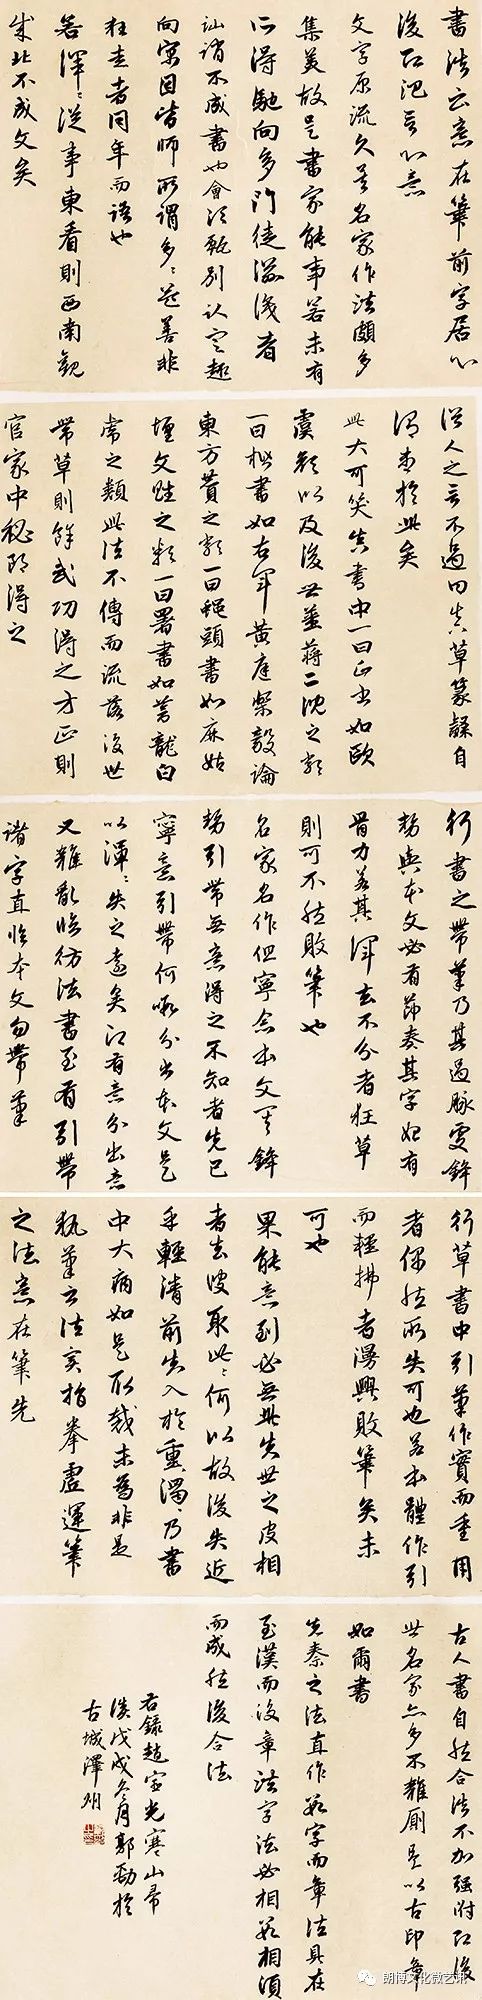 書法云意在筆前字居心
後
文字原流久矣名家作法頗多
集美故是書家能事若未有
所得馳向多門徒滋淺者
訕謂不成書也會須甄別認定趣
向案目皆師所謂多多益善非
狂走者同年而語也
若渾渾從事東看則西南觀
成北不成文矣
從人之言不過曰真草篆隸自
謂盡於此矣
此大可笑真書中一曰正書如歐
虞顏以及後世姜蔣二沈之類
一曰楷書如右軍黃庭樂毅論
東方贊之類一曰蠅頭書如麻姑
壇文賦之類一曰署書如蒼龍白
虎之類此法不傳而流落後世
帶草則錐武功得之方正則
官家中秘閣得之
行書之帶筆乃其過脉處鋒
勢與本文必有節奏其字如有
骨力若其渾去不分者狂草
則可不然敗筆也
名家名作但寧念本文筆鋒
勢引帶無意得之不知者先已
寧意引帶何暇分出本文是
以渾渾失之遠矣
又難亂臨仿法書至有引帶
諸字直臨本文勿帶筆
行草書中引筆作實而重用
者偶然所失可也若本體作引
而輕拂者漫興敗筆矣未
可也
果能意到必無此失世之皮相
者去彼取此此何以故後失近
乎輕清前失入於重濁濁乃書
中大病如是取裁未為非是
執筆之法實指拳虛運筆
之法意在筆先
古人書自然合法不加強附
世名家亦多不雜廁是以古印章
如爾書
先秦之法直作數字而章法具在
至漢而後章法字法必相若相須
而成然後合法
右錄趙宦光寒山帚
談戊戌冬月郭勁於
古城澤州
朗博文化微艺讯